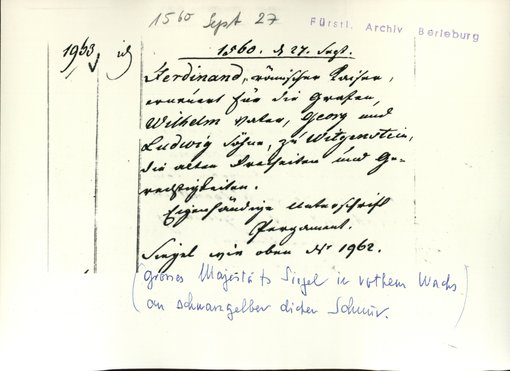 1560 Sept 27
Fürstl. Archiv Berleburg
1963
1560. d. 27. Sept.
Ferdinand, römischer Kaiser,
erneuert für die Grafen,
Wilhelm Vater, Georg und
Ludwig Söhne, zu Witgenstein,
die alten Freiheiten und Ge-
rechtigkeiten.
Eigenhändige Unterschrift
Pergament.
Siegel wie oben Nr 1962.
(grosses Majestäts Siegel in rothem Wachs
an schwarzgelber dicker Schnur.)